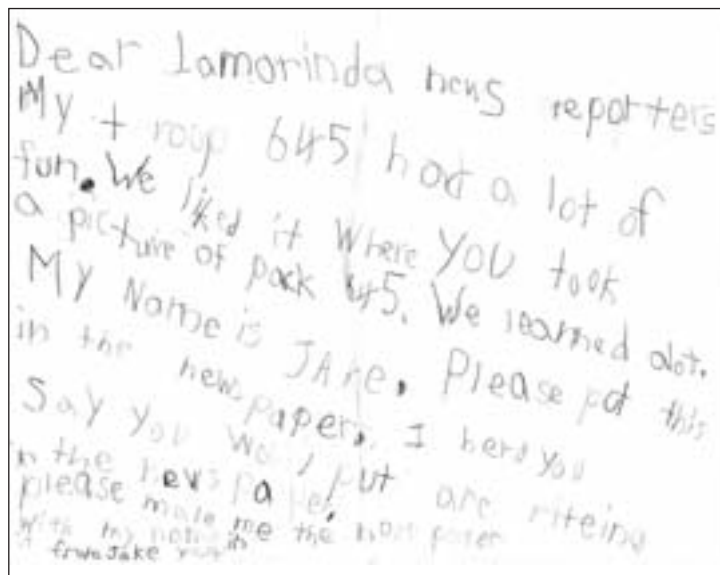 Dear Lamorinda news reporters
My troop 645 had a lot of
fun. We liked it Where YOU took
a picture of pack 645. We learned alot.
MY Name is JAke. Please put this
in the newspaper. I herd you
Say you put are riteing
in the news paper,
please male me the nors paper
with my note in
it from Jake